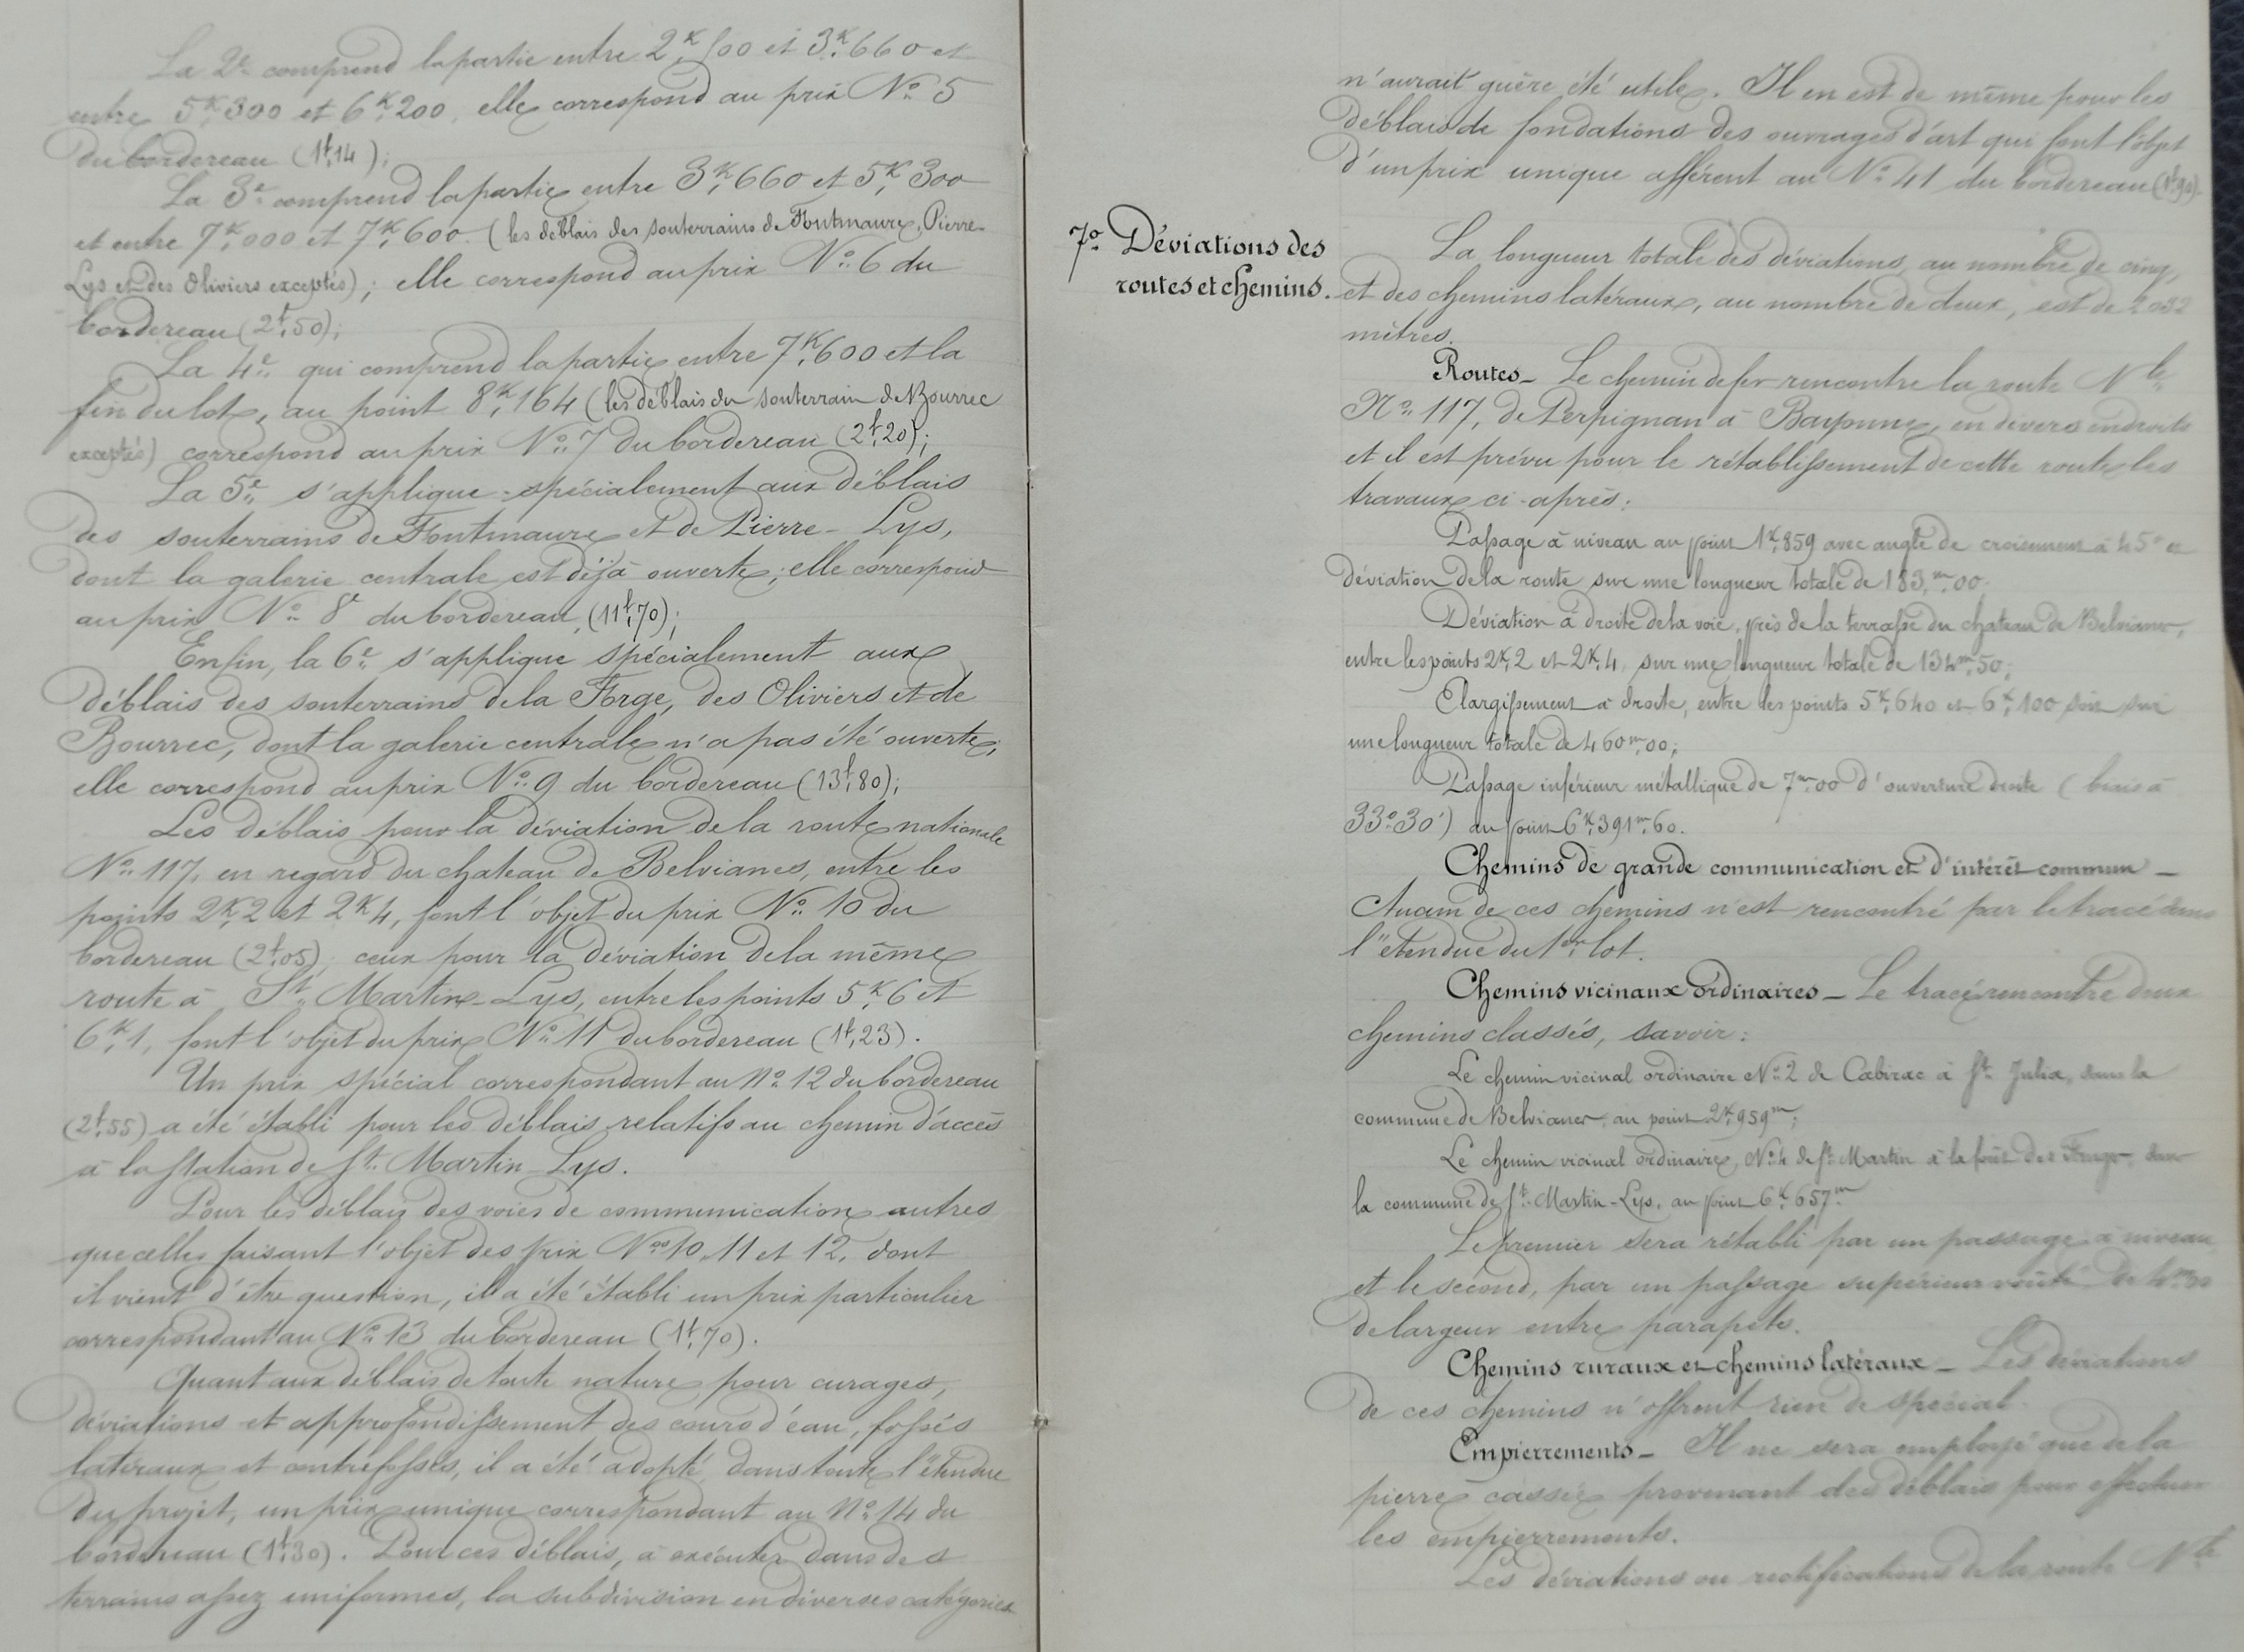 La 2e comprend la partie entre 2K,500 et 3K,660 et
entre 5K,300 et 6K,200, elle correspond au prix No 5
du bordereau (1f,14);
La 3e comprend la partie entre 3K,660 et 5K,300
et entre 7K,000 et 7K,600 (les déblais des souterrains de Fontmaure, Pierre-
Lys et des Oliviers exceptés); elle correspond au prix No 6 du
bordereau (2f,50);
La 4e qui comprend la partie entre 7K,600 et la
fin du lot, au point 8K,164 (les déblais du souterrain de Bourrec
exceptés) correspond au prix No 7 du bordereau (2f,20);
La 5e s'applique spécialement aux déblais
des souterrains de Fontmaure et de Pierre-Lys,
dont la galerie centrale est déjà ouverte; elle correspond
au prix No 8 du bordereau, (11f,70);
Enfin, la 6e s'applique spécialement aux
déblais des souterrains de la Forge, des Oliviers et de
Bourrec, dont la galerie centrale n'a pas été ouverte;
elle correspond au prix No 9 du bordereau (13f,80);
Les déblais pour la déviation de la route nationale
No 117, en regard du chateau de Belvianes, entre les
points 2K,2 et 2K,4, font l'objet du prix No 10 du
bordereau (2f,05), ceux pour la déviation de la même
route à St Martin-Lys, entre les points 5K,6 et
6K,1, font l'objet du prix No 11 du bordereau (1f,23).
Un prix spécial correspondant au No 12 du bordereau
(2f,55) a été établi pour les déblais relatifs au chemin d'accès
à la station de St Martin-Lys.
Pour les déblais des voies de communication autres
que celles faisant l'objet des prix Nos 10, 11 et 12, dont
il vient d'être question, il a été établi un prix particulier
correspondant au No 13 du bordereau (1f,70).
Quant aux déblais de toute nature pour curages,
déviations et approfondissement des cours d'eau, fossés
latéraux et contrefossés, il a été adopté, dans toute l'étendue
du projet, un prix unique correspondant au No 14 du
bordereau (1f,30). Pour ces déblais, à exécuter dans des
terrains assez uniformes, la subdivision en diverses catégories
n'aurait guère été utile. Il en est de même pour les
déblais de fondations des ouvrages d'art qui font l'objet
d'un prix unique afférent au No 41 du bordereau (1f,90).
7o Déviations des
routes et chemins.
La longueur totale des déviations, au nombre de cinq,
et des chemins latéraux, au nombre de deux, est de 2032
mètres.
Routes_ Le chemin de fer rencontre la route Nle
No 117, de Perpignan à Bayonne, en divers endroits
et il est prévu pour le rétablissement de cette route les
travaux ci-après:
Passage à niveau au point 1K,859 avec angle de croisement à 45° et
déviation de la route sur une longueur totale de 183m,00;
Déviation à droite de la voie, près de la terrasse du chateau de Belvianes,
entre les points 2K,2 et 2K,4, sur une longueur totale de 134m,50;
Elargissement à droite, entre les points 5K,640 et 6K,100 soit sur
une longueur totale de 460m,00;
Passage inférieur métallique de 7m,00 d'ouverture droite (biais à
33°30') au point 6K,391m,60.
Chemins de grande communication et d'intérêt commun_
Aucun de ces chemins n'est rencontré par le tracé dans
l'étendue du 1er lot.
Chemins vicinaux ordinaires_ Le tracé rencontre deux
chemins classés, savoir:
Le chemin vicinal ordinaire No 2 de Cabirac à St Julia, dans la
commune de Belvianes, au point 2K,959m;
Le chemin vicinal ordinaire, No 4 de St Martin à la forêt des Fanges, dans
la commune de St Martin-Lys, au point 6K,657m
Le premier sera rétabli par un passage à niveau
et le second, par un passage supérieur voûté de 4m,00
de largeur entre parapets.
Chemins ruraux et chemins latéraux_ Les déviations
de ces chemins n'offrent rien de spécial.
Empierrements_ Il ne sera employé que de la
pierre cassée provenant des déblais pour effectuer
les empierrements.
Les déviations ou rectifications de la route Nle